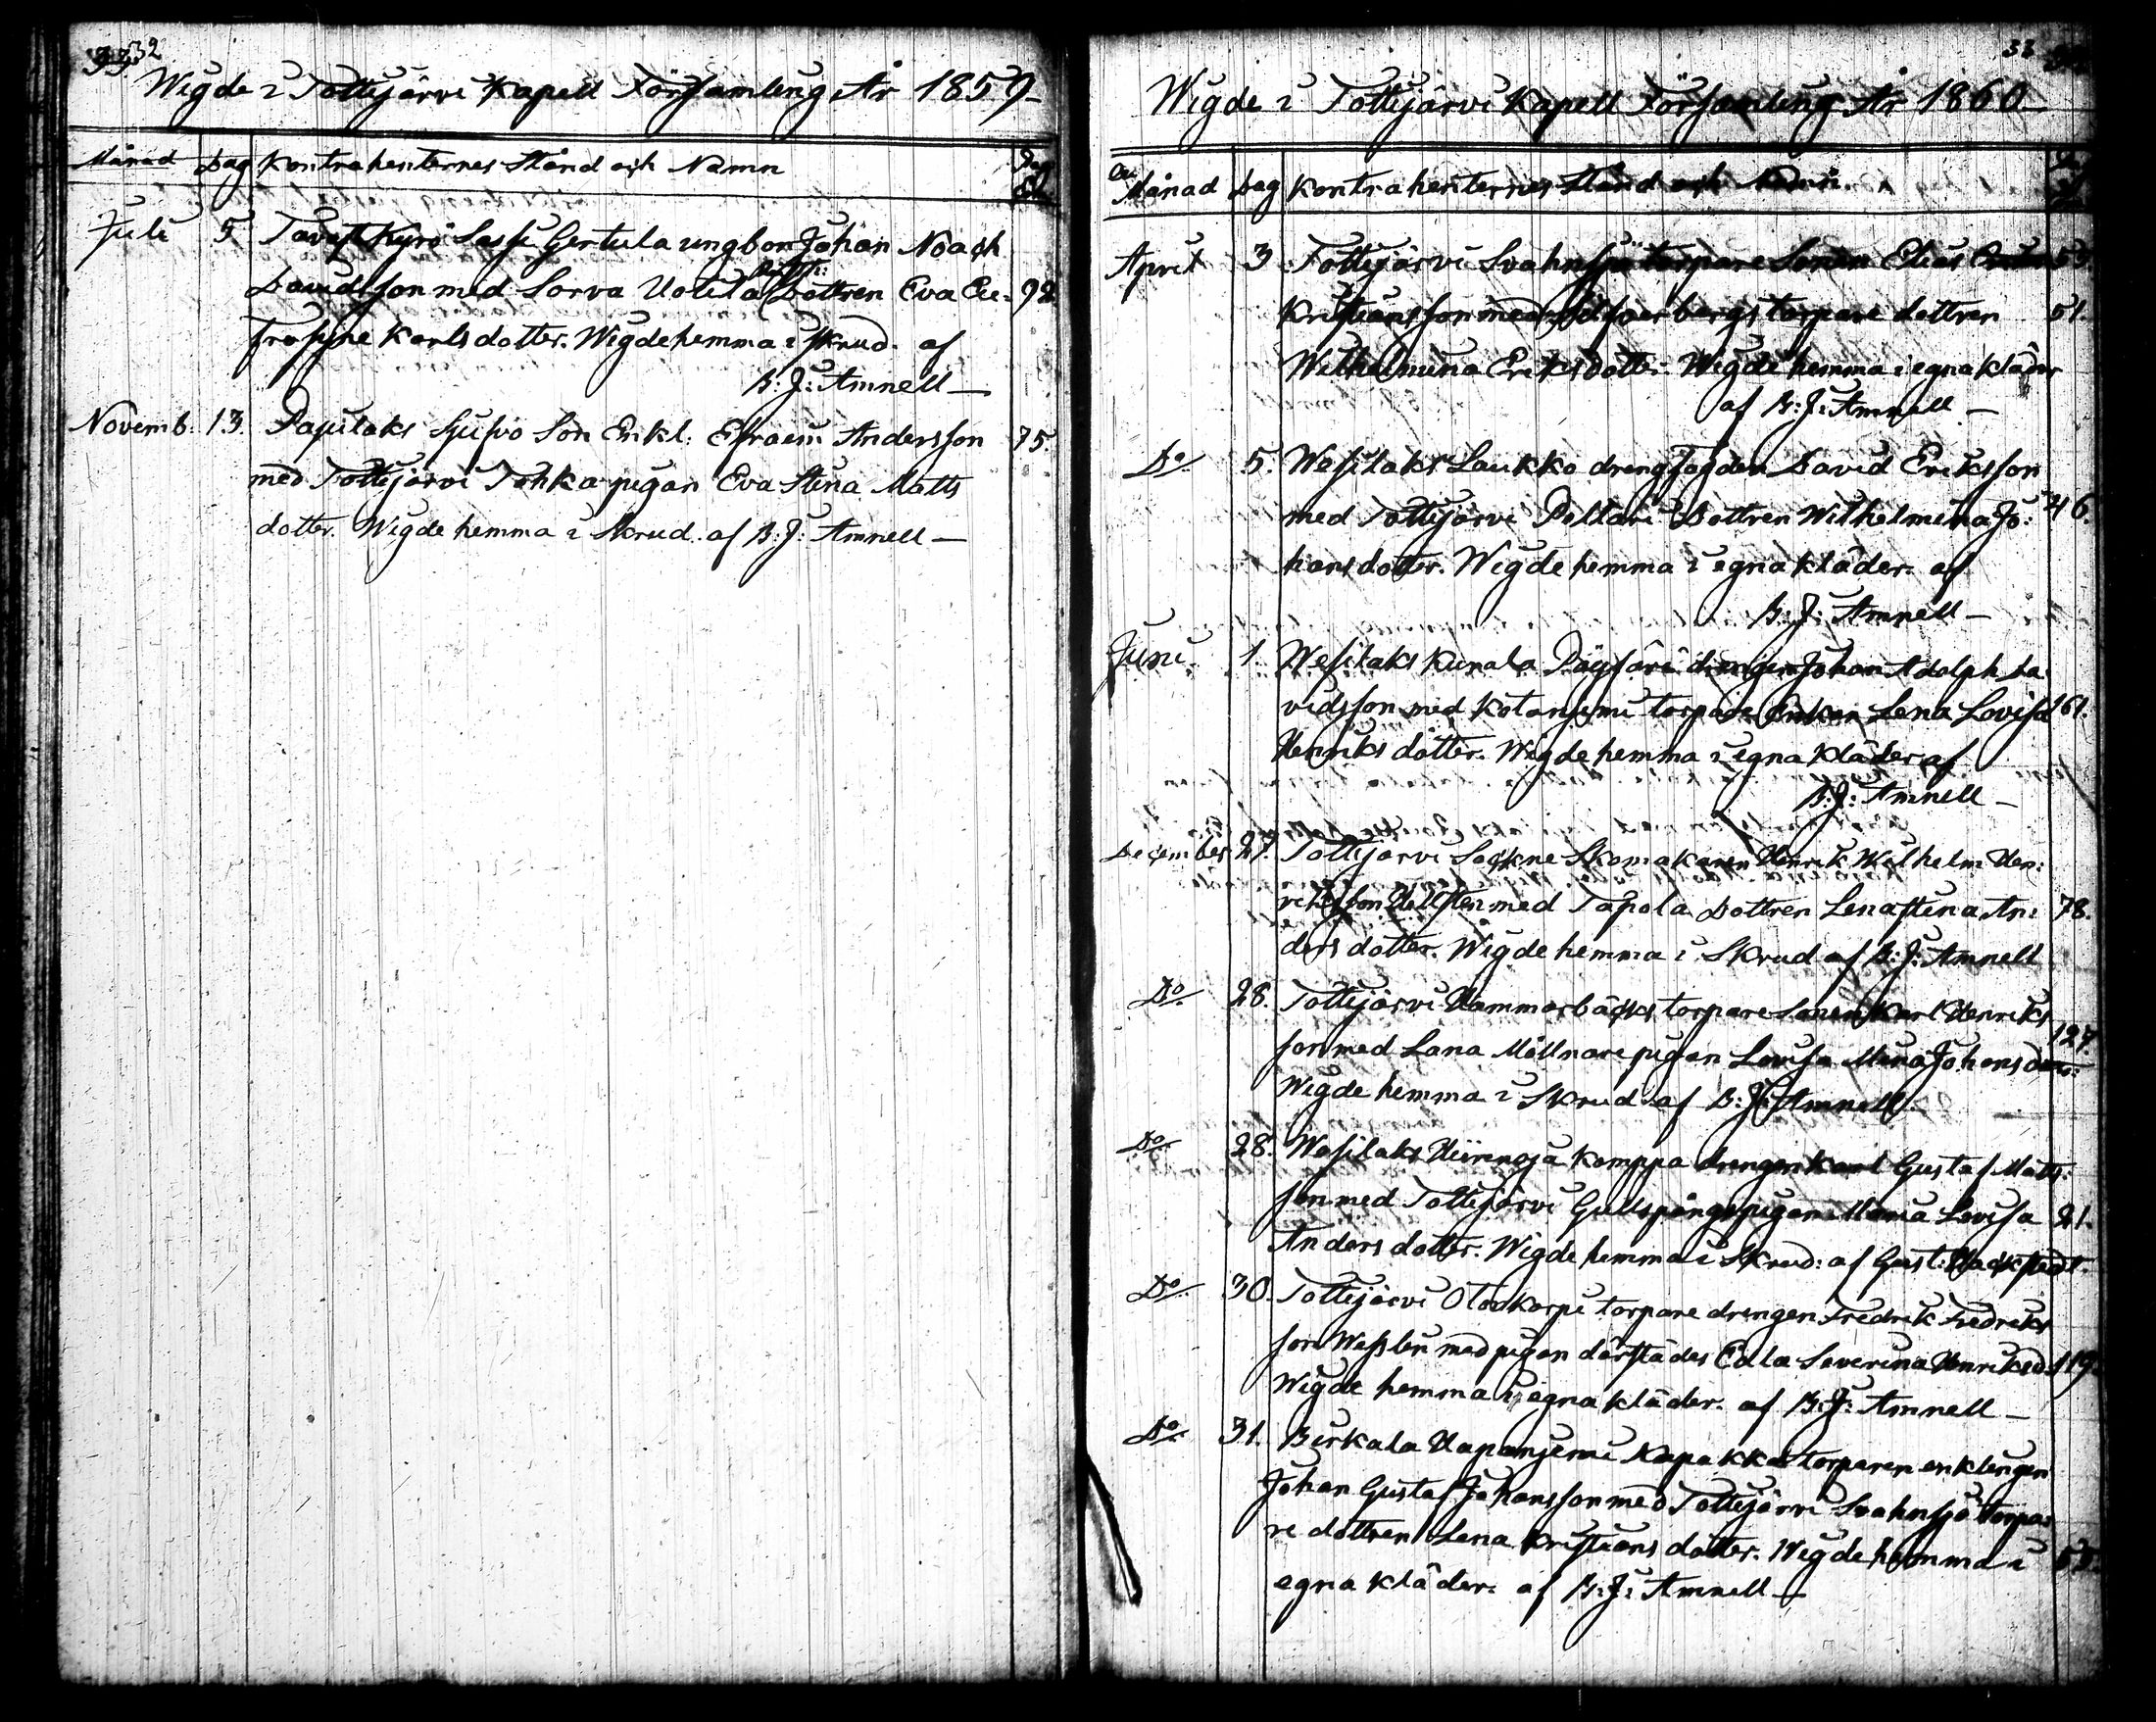 32
Wigde i Tottijärvi Kapell Församling År 1859
Månad Dag Kontrahenternes Stånd och Namn Pag
Juli 5 Tavastkyrö Sassi Gertula ungbon Johan Noach
Davidsson med Sorva Uotila Dottren Eva Eu- 92
frosyne Karlsdotter. Wigde hemma i skrud. af
B: J: Amnell
Novemb. 13. Pajulaks Sjulvo Son Enkl: Efraim Andersson 75.
med Tottijärvi Tohka pigan Eva Stina Matts
dotter. Wigde hemma i Skrud. af B: J: Amnell
33
Wigde i Tottijärvi Kapell Församling År 1860
Månad Dag Kontrahenternes Stånd och Namn.
April 3 Tottijärvi Svahnsjö torpare Sonen Elias 53.
Kristiansson med Silfverbergs torpare dottren 51.
Wilhelmina Eriksdotter. Wigde hemma i egna kläder
af B: J: Amnell
Do. 5. Wesilaks Laukko drengfogden David Eriksson
med Tottijärvi Paltari Dottren Wilhelmina Jo: 46.
hansdotter. Wigde hemma i egna kläder. af
B: J: Amnell
Juni. 1. Wesilaks Kurala Pöysäri drengen Johan Adolph Da
vidsson med Kotaniemi torpare Enkan Lena Lovisa 161.
Henriksdotter. Wigde hemma i egna kläder af
B: J: Amnell
December 27. Tottijärvi Sockne Skomakaren Henrik Wilhelm Hen:
riksson Hellsten med Tapola Dottren Lena Stina An: 78.
dersdotter. Wigde hemma i Skrud af B: J: Amnell
Do. 28. Tottijärvi Hammarbäcks torpare Sonen Karl Henriks
son med Lana Möllnare pigan Lovisa Mina Johansdotter: 127.
Wigde hemma i Skrud. af B: J: Amnell.
Do. 28. Wesilaks Hiirenoja Komppa drengen Karl Gustaf Matts:
son med Tottijärvi Gullspångs pigan Maria Lovisa 21.
Andersdotter. Wigde hemma i Skrud: af Gust: Hackstedt.
Do. 30. Tottijärvi Otavkorpi torpare drengen Fredrik Fredriks
son Wesslin med pigan därstädes Edla Severina Henriksd. 119.
Wigde hemma i egna kläder. af B: J: Amnell
Do. 31. Birkala Haponjemi Kapakka torparen enklingen
Johan Gustaf Johansson med Tottijärvi Svahnsjö torpa:
re dottren Lena Kristians dotter. Wigde hemma i 53.
egna kläder. af B: J: Amnell